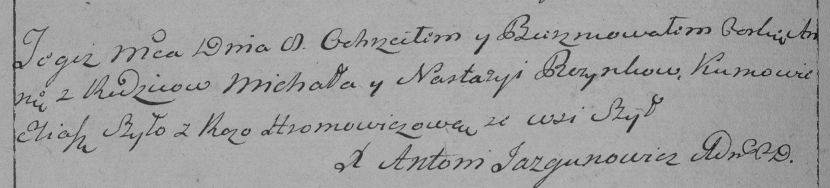 Tegoż Mca Dnia 8. Ochrzciłem y Bierzmowałem Corkę An
nę z Rodzicow Michała y Nastazyi Rozynkow, Kumowie
Eliasz Szyło z Rozo Hromowiczową ze wsi Szył
X Antoni Jazgunowicz